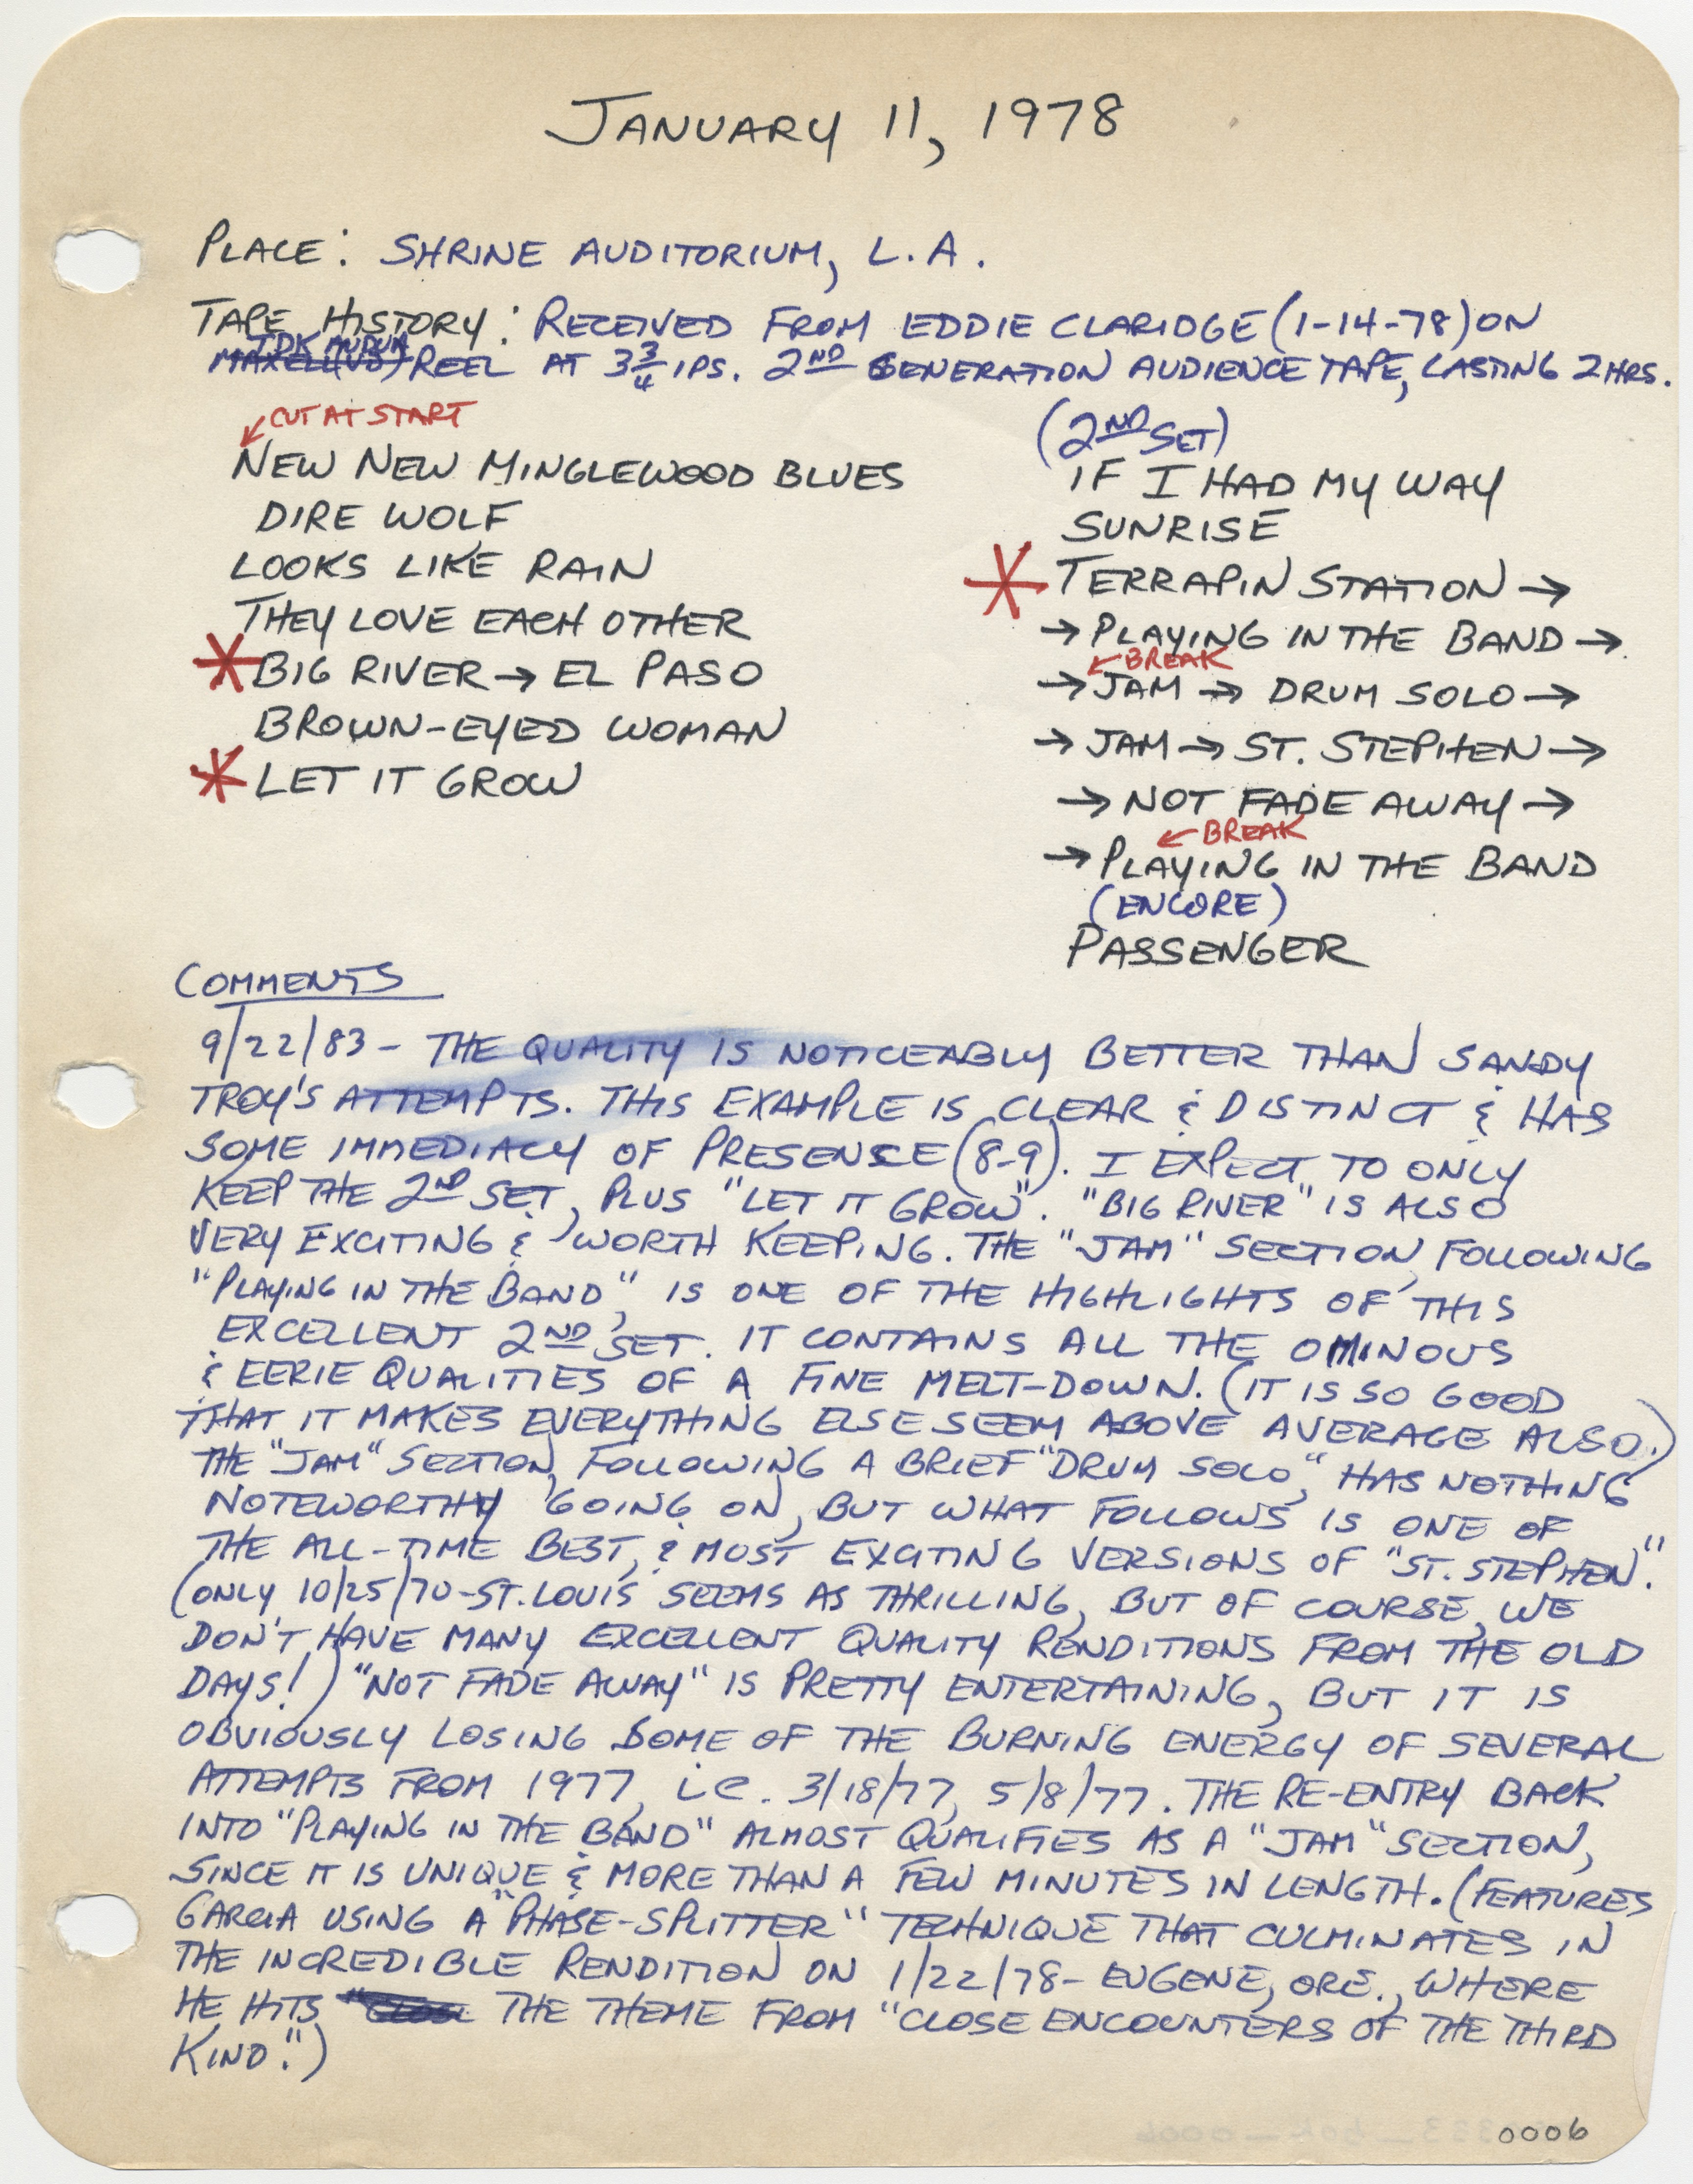 JANUARY 11, 1978
PLACE: SHRINE AUDITORIUM, L.A.
TAPE HISTORY: RECEIVED FROM EDDIE CLARIDGE (1-14-78) ON
TDK AUDUA
MAXELL (UD) REEL AT 3 3/4 IPS. 2ND GENERATION AUDIENCE TAPE, LASTING 2 HRS.
CUT AT START
NEW NEW MINGLEWOOD BLUES
DIRE WOLF
LOOKS LIKE RAIN
THEY LOVE EACH OTHER
* BIG RIVER → EL PASO
BROWN-EYED WOMAN
* LET IT GROW
(2ND SET)
IF I HAD MY WAY
SUNRISE
* TERRAPIN STATION →
→ PLAYING IN THE BAND →
← BREAK
→ JAM → DRUM SOLO →
→ JAM → ST. STEPHEN →
→ NOT FADE AWAY →
← BREAK
→ PLAYING IN THE BAND
(ENCORE)
PASSENGER
COMMENTS
9/22/83 - THE QUALITY IS NOTICEABLY BETTER THAN SANDY
TROY'S ATTEMPTS. THIS EXAMPLE IS CLEAR & DISTINCT & HAS
SOME IMMEDIACY OF PRESENCE (8-9). I EXPECT TO ONLY
KEEP THE 2ND SET, PLUS "LET IT GROW". "BIG RIVER" IS ALSO
VERY EXCITING & WORTH KEEPING. THE "JAM" SECTION, FOLLOWING
"PLAYING IN THE BAND", IS ONE OF THE HIGHLIGHTS OF THIS
EXCELLENT 2ND SET. IT CONTAINS ALL THE OMINOUS
& EERIE QUALITIES OF A FINE MELT-DOWN. (IT IS SO GOOD
THAT IT MAKES EVERYTHING ELSE SEEM ABOVE AVERAGE ALSO.)
THE "JAM" SECTION, FOLLOWING A BRIEF "DRUM SOLO," HAS NOTHING
NOTEWORTHY GOING ON, BUT WHAT FOLLOWS IS ONE OF
THE ALL-TIME BEST, & MOST EXCITING VERSIONS OF "ST. STEPHEN".
(ONLY 10/25/70-ST. LOUIS SEEMS AS THRILLING, BUT OF COURSE, WE
DON'T HAVE MANY EXCELLENT QUALITY RENDITIONS FROM THE OLD
DAYS!) "NOT FADE AWAY" IS PRETTY ENTERTAINING, BUT IT IS
OBVIOUSLY LOSING SOME OF THE BURNING ENERGY OF SEVERAL
ATTEMPTS FROM 1977, i.e. 3/18/77, 5/8/77. THE RE-ENTRY BACK
INTO "PLAYING IN THE BAND" ALMOST QUALIFIES AS A "JAM" SECTION,
SINCE IT IS UNIQUE & MORE THAN A FEW MINUTES IN LENGTH. (FEATURES
GARCIA USING A "PHASE-SPLITTER" TECHNIQUE THAT CULMINATES IN
THE INCREDIBLE RENDITION ON 1/22/78-EUGENE, ORE., WHERE
HE HITS THE THEME FROM "CLOSE ENCOUNTERS OF THE THIRD
KIND".)
0006